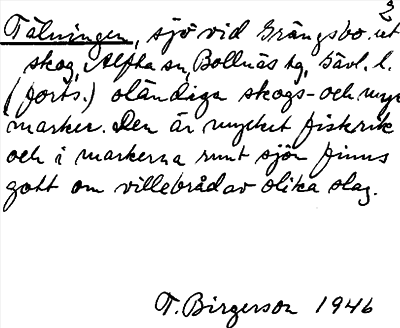 2
Tälningen, sjö vid Grängsbo ut
skog, Alfta sn, Bollnäs tg, Gävl. l.
(forts.) oländiga skogs- och myr
marker. Den är mycket fiskrik
och i markerna runt sjön finns
gott om villebråd av olika slag.
T. Birgerson 1946